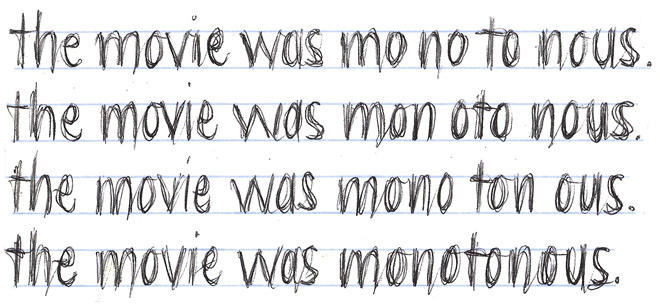 the movie was mo no to nous.
the movie was mon oto nous.
the movie was mono ton ous.
the movie was monotonous.